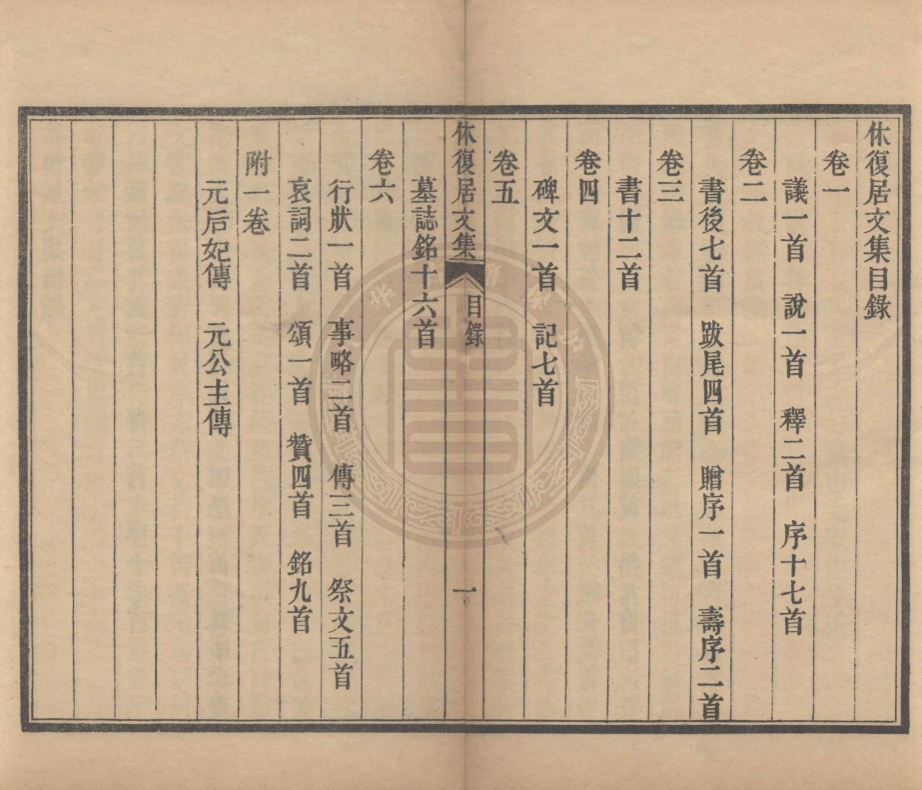 休復居文集目錄
卷一
議一首　說一首　釋二首　序十七首
卷二
書後七首　跋尾四首　贈序一首　壽序二首
卷三
書十二首
卷四
碑文一首　記七首
卷五
休復居文集　目錄　一
墓誌銘十六首
卷六
行狀一首　事略二首　傳三首　祭文五首
哀詞二首　頌一首　贊四首　銘九首
附一卷
元后妃傳　元公主傳